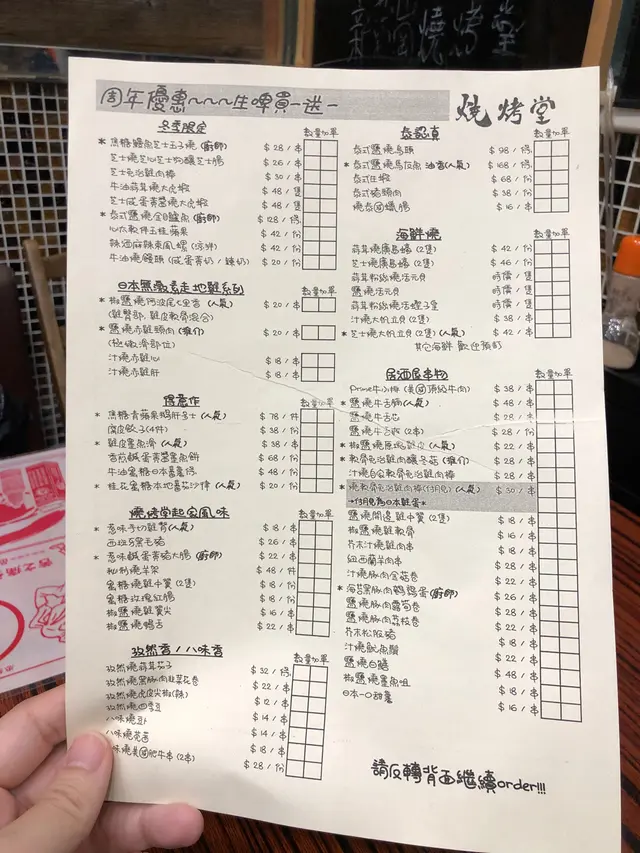 燒烤堂
周年優惠~~~~生啤買一送一
燒烤堂
冬季限定
數量 加單
* 焦糖鰻魚芝士玉子燒(廚師) $28/串
芝士燒芝心芝士狗釀芝士腸 $26/串
芝士免治雞肉棒 $30/串
牛油蒜茸燒大虎蝦 $48/隻
芝士咸蛋黃醬燒大虎蝦 $48/隻
* 泰式鹽燒金目鱸魚(廚師) $128/條
心太軟伴玉桂蘋果 $42/份
辣酒麻辣東風螺(凉伴) $42/份
牛油燒饅頭(咸蛋黃奶/煉奶) $20/份
日本無激素走地雞系列
數量 加單
* 椒鹽燒阿波尾七里香(人氣) $20/串
(雞臀部,雞皮軟骨混合)
* 鹽燒赤雞頸肉(推介) $20/串
(極嫩滑部位)
汁燒赤雞心 $18/串
汁燒赤雞肝 $18/串
數量 加單
* 焦糖青蘋果鴨肝多士(人氣) $78/件
腐皮餃子(4件) $38/份
* 雞皮墨魚滑(人氣) $38/串
香煎鹹蛋黃醬墨魚餅 $68/份
牛油蜜糖日本蕃薯仔 $48/份
* 桂花蜜糖本地蕃茄沙律(人氣) $20/份
燒烤堂起家風味
數量 加單
* 惹味手切雞腎(人氣) $18/串
西班牙黑毛豬 $26/串
* 惹味鹹蛋黃豬大腸(廚師) $22/串
秘制燒羊架 $48/件
蜜糖燒雞中翼(2隻) $18/份
蜜糖玫瑰紅腸 $18/份
椒鹽燒雞翼尖 $16/串
椒鹽燒鴨舌 $22/串
孜然香/八味香
數量 加單
孜然燒蒜茸茄子 $32/條
孜然燒黑豚肉韭菜花卷 $22/串
孜然燒虎皮尖椒(辣) $12/串
孜然燒四季豆 $14/串
八味燒豆卜 $14/串
八味燒茄菌 $18/串
味燒美國肥牛串(2串) $28/份
泰認真
數量 加單
泰式鹽燒烏頭 $98/條
* 泰式鹽燒馬友魚 油香(人氣) $168/條
泰式生蝦 $68/份
泰式豬頸肉 $38/份
燒泰國蠟腸 $16/串
海鮮燒
數量 加單
蒜茸燒廣島蠔(2隻) $42/份
芝士燒廣島蠔(2隻) $46/份
蒜茸粉絲燒活元貝 時價/隻
鹽燒活元貝 時價/隻
蒜茸粉絲燒活蟶子皇 時價/隻
汁燒大帆立貝(2隻) $38/串
* 芝士燒大帆立貝(2隻)(人氣) $42/串
其它海鮮 歡迎預訂
居酒屋串物
數量 加單
Prime牛小排(美國頂級牛肉) $38/串
* 鹽燒牛舌腩(人氣) $48/串
鹽燒牛舌芯 $28/串
鹽燒牛舌粒(2串) $28/份
* 椒鹽燒原塊雞皮(人氣) $22/串
* 軟骨免治雞肉釀冬菇(推介) $28/串
汁燒自家軟骨免治雞肉棒 $28/串
* 燒軟骨免治雞肉棒(付月見)(人氣) $30/串
→付月見為日本雞蛋*
鹽燒開邊雞中翼(2隻) $18/份
椒鹽燒雞軟骨 $16/串
芥末汁燒雞肉串 $18/串
紐西蘭羊肉串 $28/串
汁燒豚肉金菇卷 $22/串
* 海苔黑豚肉鵪鶉蛋(廚師) $26/串
鹽燒豚肉露筍卷 $28/串
鹽燒豚肉荔枝卷 $22/串
芥末松阪豬 $22/串
汁燒魷魚鬚 $18/串
鹽燒白鱔 $48/串
椒鹽燒墨魚咀 $18/串
日本一口甜薯 $16/串
請反轉背面繼續order!!!